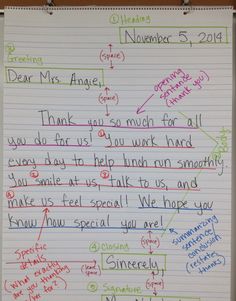 ① Heading
November 5, 2014
② Greeting
(space)
Dear Mrs. Angie,
(space)
opening sentence (thank you)
Thank you so much for all
you do for us! ① You work hard
every day to help lunch run smoothly.
② You smile at us, talk to us, and
③ make us feel special! We hope you
know how special you are!
④ Closing
(space)
summarizing sentence/conclusion (restates thanks)
Specific details
(What exactly are you thanking her for?)
Sincerely,
(space)
⑤ Signature